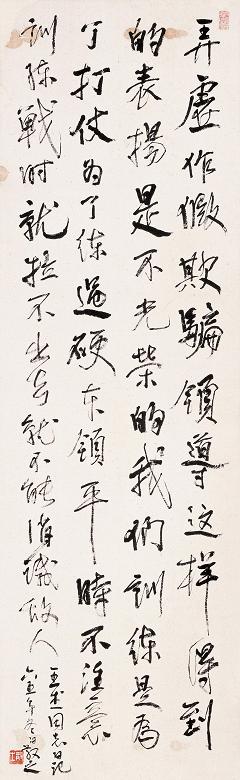 弄虚作假欺骗领导这样得到
的表揚是不光荣的我們訓练是為
了打仗为了练過硬本領平時不注意
訓练戰时就拉不出去就不能消滅敌人
王杰同志日记